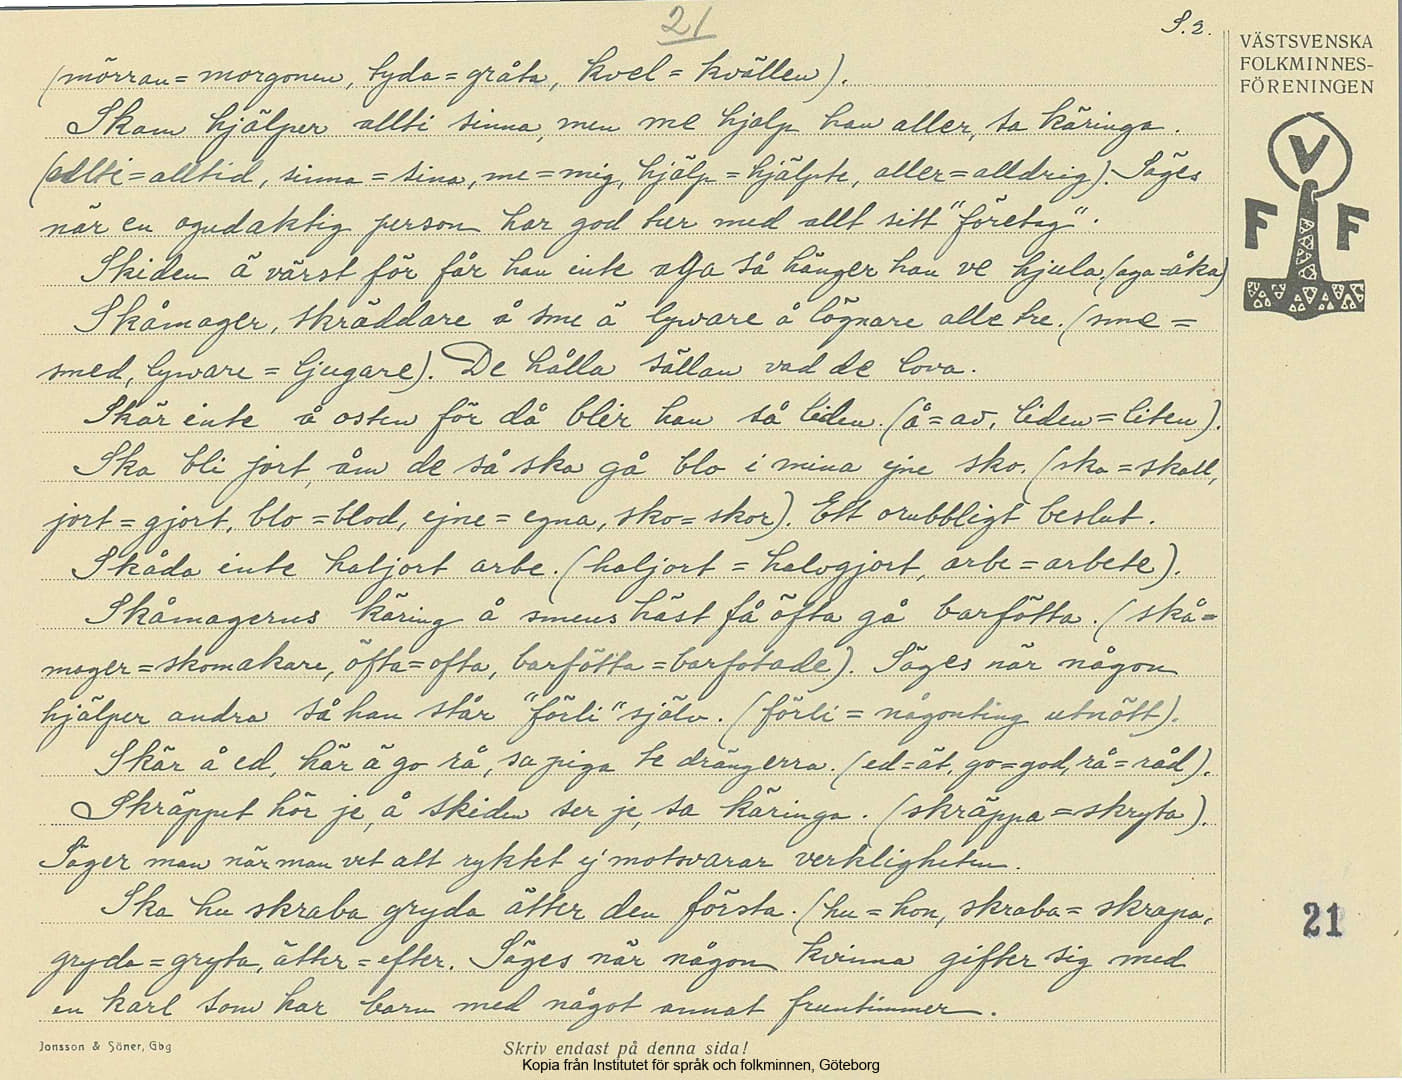 21
S. 2.
(mörran = morgonen, tyda = gråta, kvel = kvällen).
Skam hjälper allti sinna, men me hjalp han aller, sa käringa.
(allti = alltid, sinna = sina, me = mig, hjälp = hjälpte, aller = alldrig). Säges
när en ogudaktig person har god tur med allt sitt "företag".
Skiden ä värst för får han inte aga så hänger han ve hjula. (aga = åka)
Skåmager, skräddare å sme ä lyware å lögnare alle tre. (sme =
smed, lyware = ljugare). De hålla sällan vad de lova.
Skär inte å osten för då blir han så liden. (å = av, liden = liten).
Ska bli jort, åm de så ska gå blo i mina ejne sko. (ska = skall,
jort = gjort, blo = blod, ejne = egna, sko = skor). Ett orubbligt beslut.
Skåda inte haljort arbe. (haljort = halvgjort, arbe = arbete).
Skåmagerns käring å smens häst få öfta gå barfötta. (skå=
mager = skomakare, öfta = ofta, barfötta = barfotade). Säges när någon
hjälper andra så han står "förli" själv. (förli = någonting utnött).
Skär å ed, här ä go rå, sa piga te drängerra. (ed = ät, go = god, rå = råd).
Skräppet hör je, å skiden ser je, sa käringa. (skräppa = skryta).
Säger man när man vet att ryktet ej motsvarar verkligheten.
Ska hu skraba gryda ätter den första. (hu = hon, skraba = skrapa,
gryda = gryta, ätter = efter. Säges när någon kvinna gifter sig med
en karl som har barn med något annat fruntimmer.
VÄSTSVENSKA
FOLKMINNES-
FÖRENINGEN
V
F F
21
Jonsson & Söner, Gbg
Skriv endast på denna sida!
Kopia från Institutet för språk och folkminnen, Göteborg